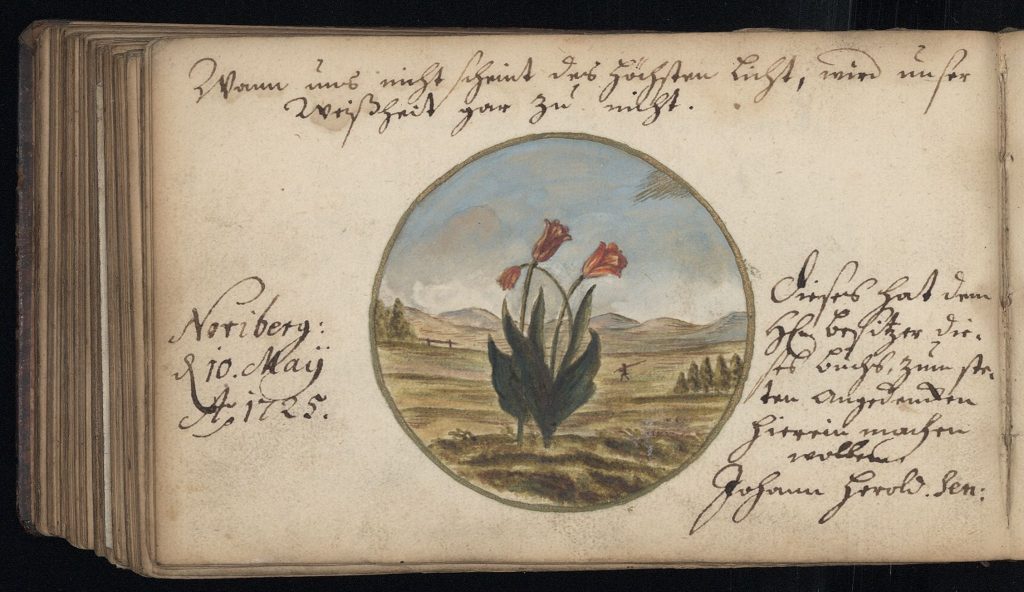 Wann uns nicht scheint des höchsten Licht, wird unser
Weißheit gar zu nicht.
Noriberg:
d 10. Maÿ
Aº 1725.
Dieses hat dem
Hℏ besitzer die-
ses buchs, zum ste-
ten Angedencken
hierein machen
wollen
Johann Herold. Sen: